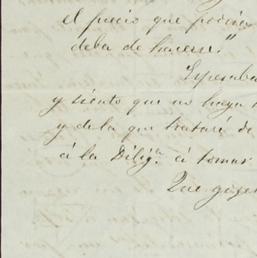 el precio que podria
deba de hacerse."
Esperaba
y siento que no haya
y de la que trataré de
á la Dilig.ª á tomar
Que goze